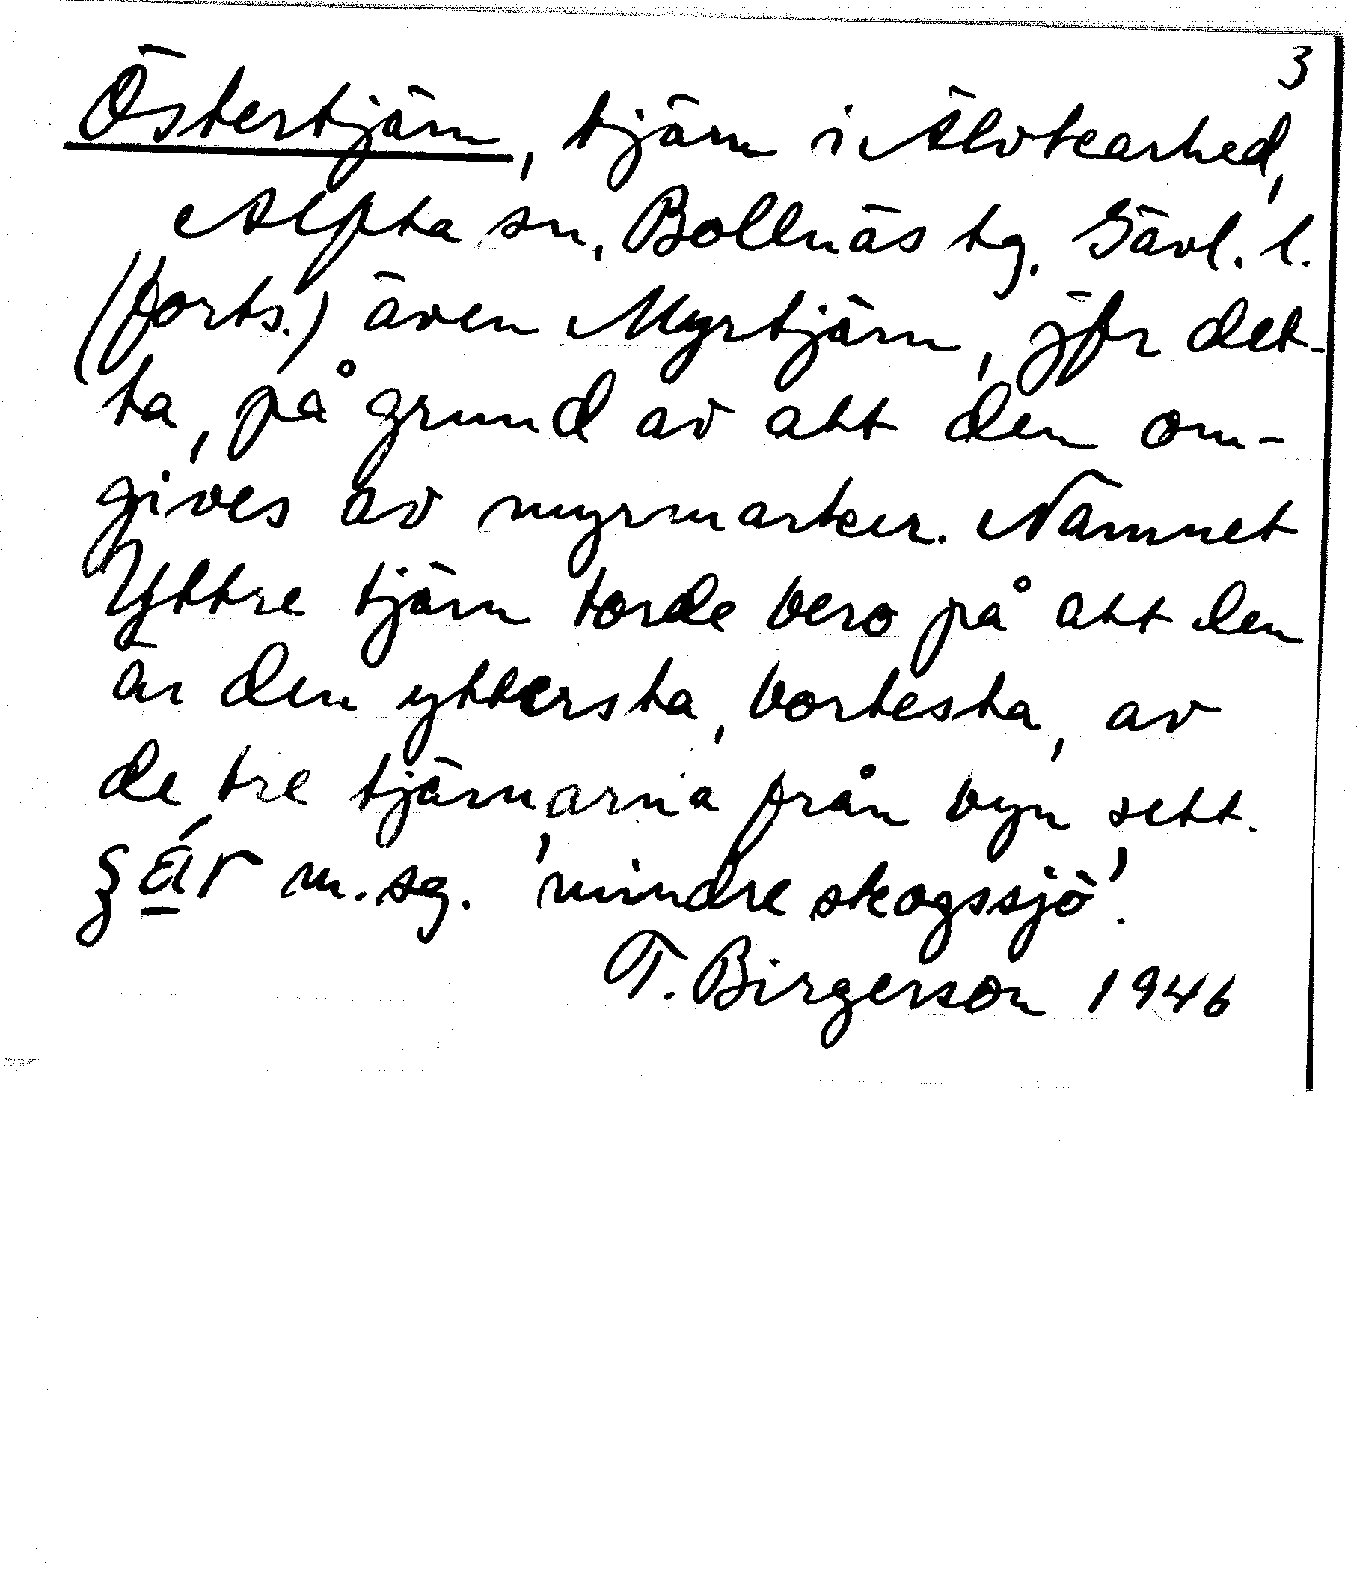 3
Östertjärn, tjärn i Älvkarhed,
Alfta sn, Bollnäs tg. Gävl. l.
(forts.) även Myrtjärn, jfr det-
ta, på grund av att den om-
gives av myrmarker. Namnet
Yttre tjärn torde bero på att den
är den yttersta, bortesta, av
de tre tjärnarna från byn sett.
m. sg. 'mindre skogssjö'.
T. Birgerson 1946